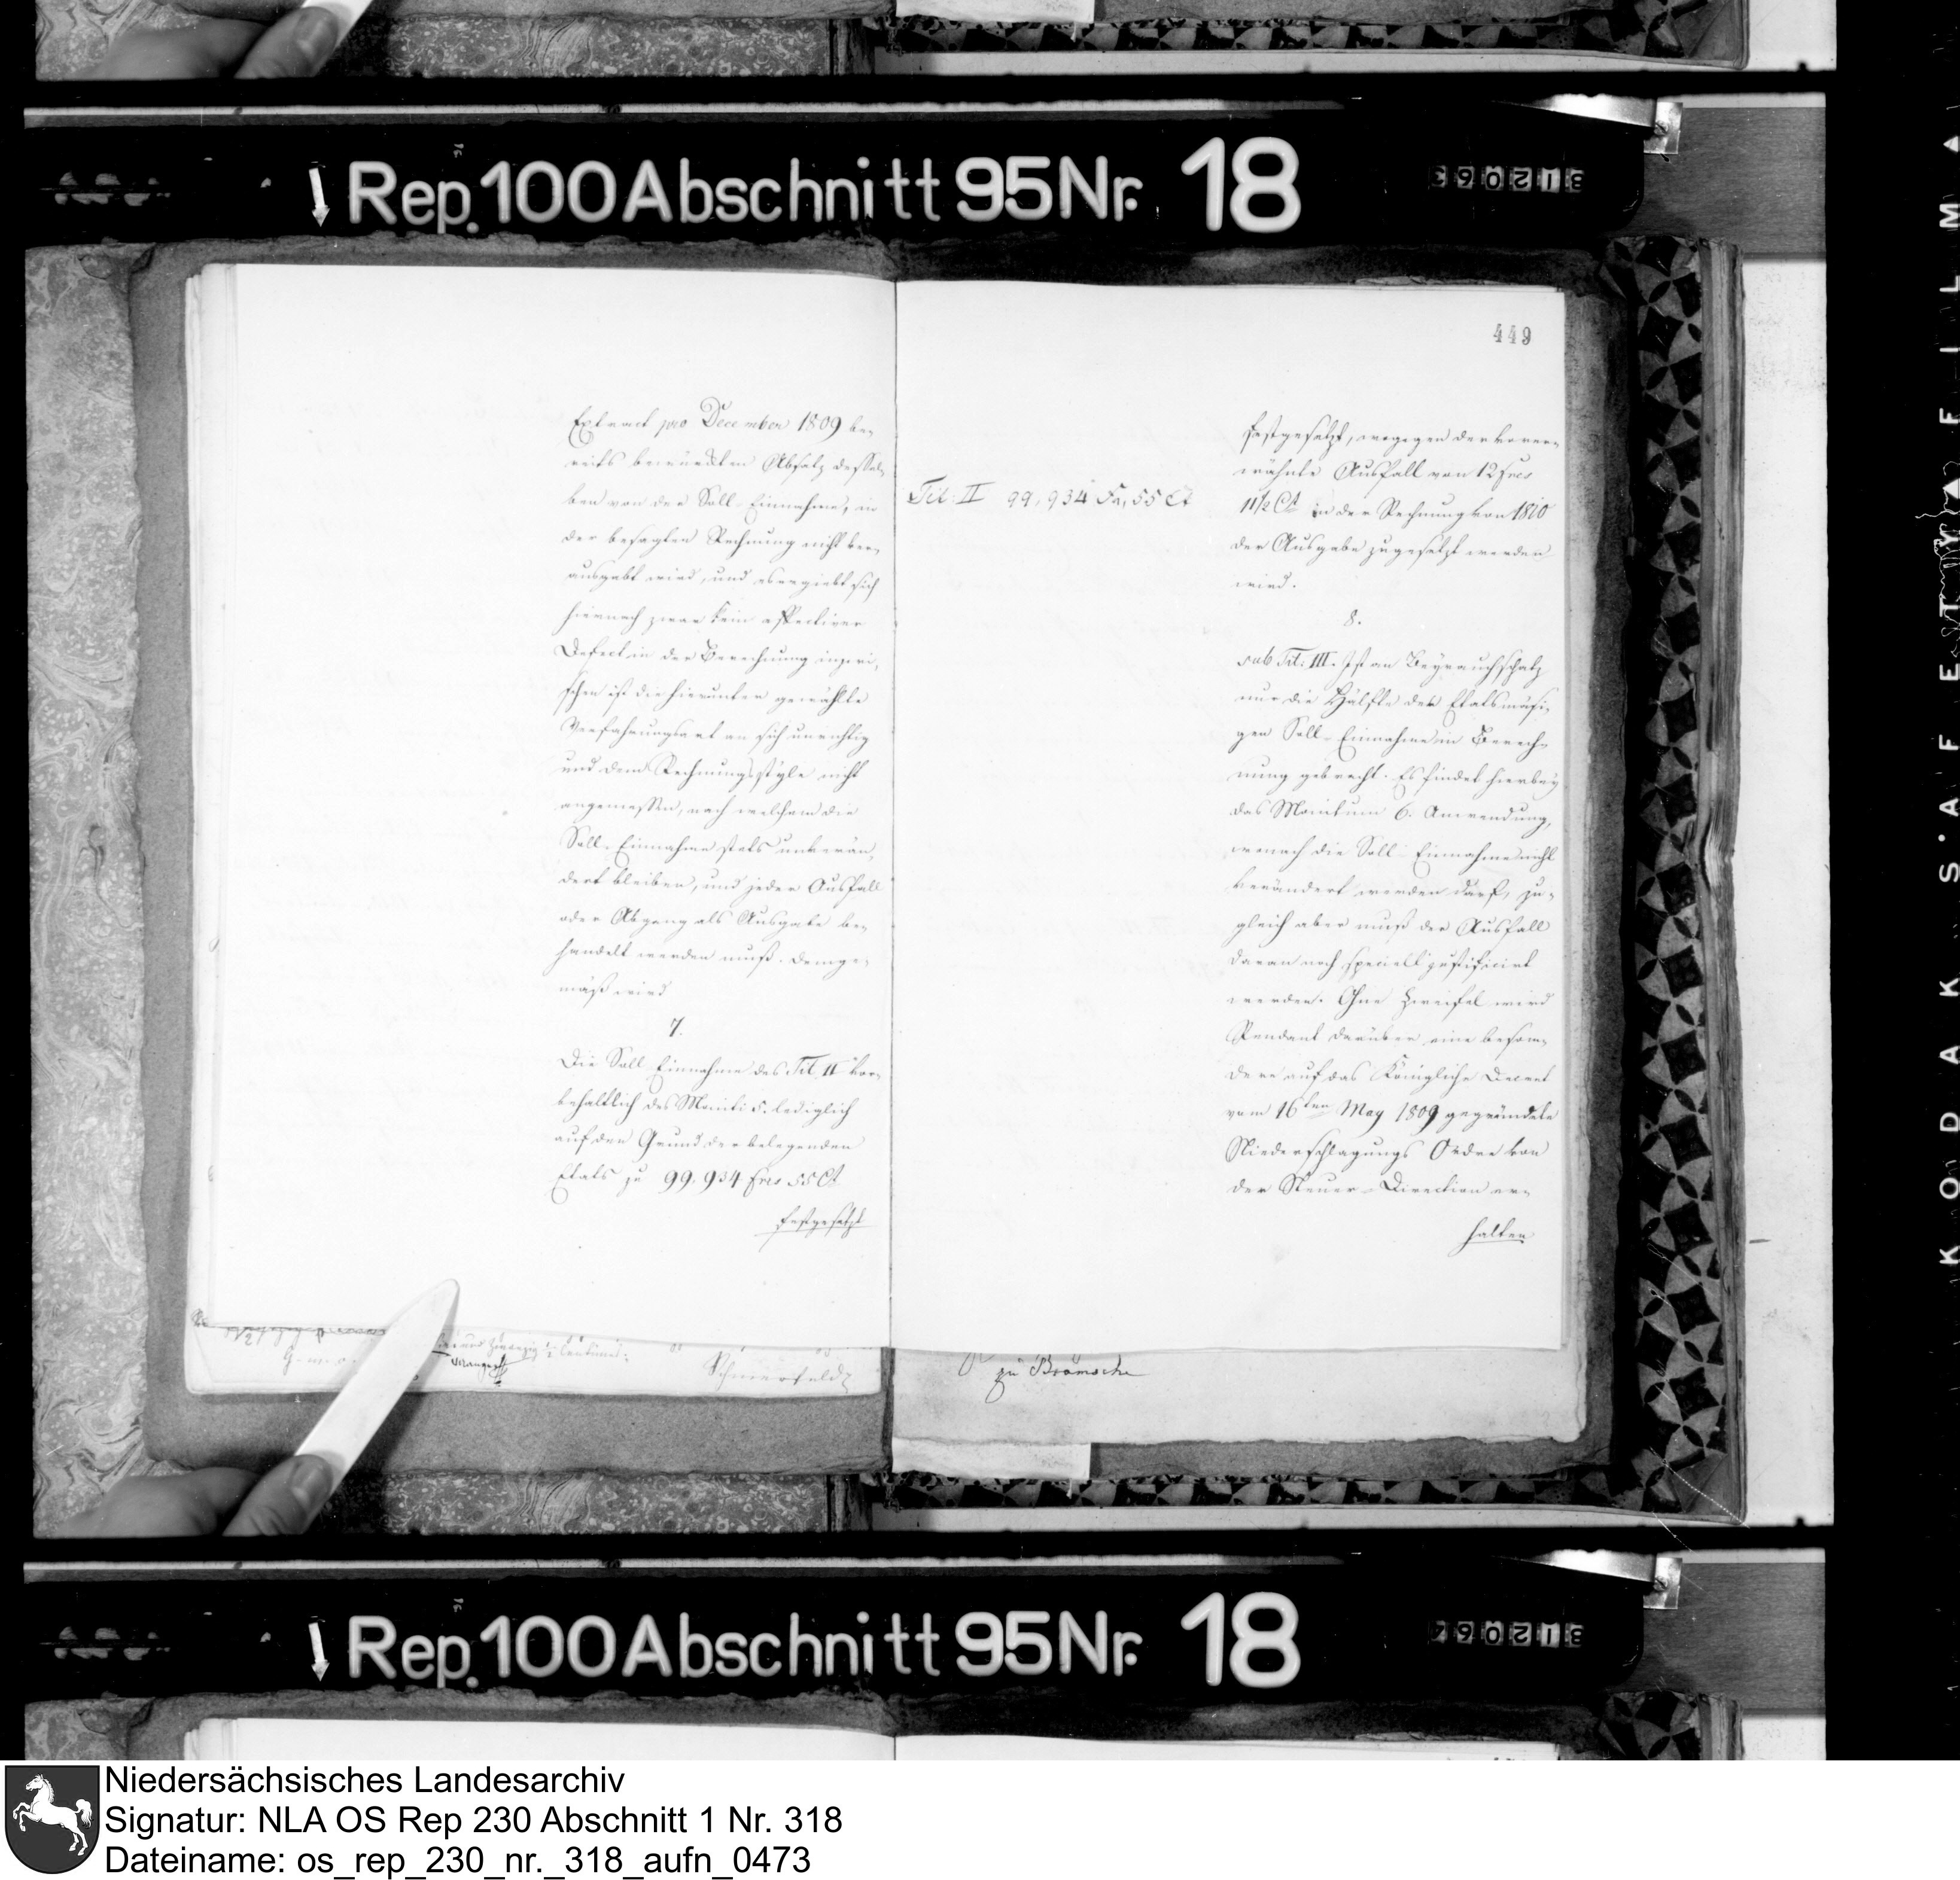 Rep. 100 Abschnitt 95 Nr. 18
312063
449
Extract pro December 1809 be-
reits bemerkten Absatz dessel-
ben von der Soll-Einnahme, in
der besagten Rechnung nicht ver-
ausgabt wird, und es ergiebt sich
hiernach zwar kein effectiver
Defect in der Berechnung inzwi-
schen ist die hierunter gewählte
Verfahrungsart an sich unrichtig
und dem Rechnungsstyle nicht
angemessen, nach welchem die
Soll-Einnahme stets unverän-
dert bleiben, und jeder Ausfall
oder Abgang als Ausgabe be-
handelt werden muß. Demge-
mäß wird
7.
Die Soll Einnahme des Tit. II vor-
behaltlich des Moniti 5. lediglich
auf den Grund der belegenden
Etats zu 99,934 frcs 55 Ct
festgesetzt
Schmerfeld
Tit: II 99,934 Fr, 55 Ct
festgesetzt, wogegen der vorer-
wähnte Ausfall von 12 frcs
11½ Ct in der Rechnung von 1810
der Ausgabe zugesetzt werden
wird.
8.
sub Tit: III. Ist an Beyrauchschatz
nur die Hälfte der Etatsmäsi-
gen Soll-Einnahme in Berech-
nung gebracht. Es findet hierbey
das Monitum 6. Anwendung,
wonach die Soll-Einnahme nicht
verändert werden darf, zu-
gleich aber muß der Ausfall
daran noch speciell justificirt
werden. Ohne Zweifel wird
Rendant darüber eine beson-
dere auf das Königliche Decret
vom 16ten May 1809 gegründete
Niederschlagungs Ordre von
der Steuer-Direction er-
halten
zu Bramsche
KODAK SAFETY FILM
Rep. 100 Abschnitt 95 Nr. 18
312064
Niedersächsisches Landesarchiv
Signatur: NLA OS Rep 230 Abschnitt 1 Nr. 318
Dateiname: os_rep_230_nr._318_aufn_0473